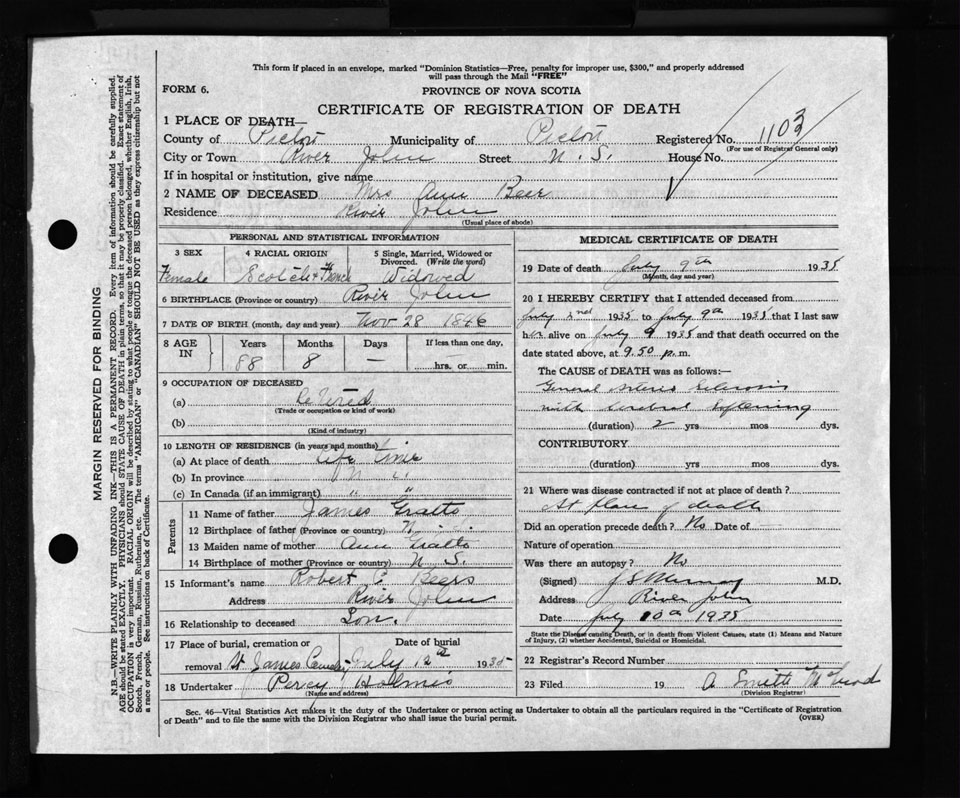 This form if placed in an envelope, marked "Dominion Statistics—Free, penalty for improper use, $300," and properly addressed
will pass through the Mail "FREE"
FORM 6.
PROVINCE OF NOVA SCOTIA
CERTIFICATE OF REGISTRATION OF DEATH
1 PLACE OF DEATH—
County of Pictou Municipality of Pictou Registered No. 1103
(For use of Registrar General only)
City or Town River John Street N. S. House No.
If in hospital or institution, give name
2 NAME OF DECEASED Mrs Ann Beer
Residence River John
(Usual place of abode)
PERSONAL AND STATISTICAL INFORMATION
3 SEX 4 RACIAL ORIGIN 5 Single, Married, Widowed or Divorced. (Write the word)
Female Scotch & French Widowed
6 BIRTHPLACE (Province or country) River John
7 DATE OF BIRTH (month, day and year) Nov 28 1846
8 AGE IN Years Months Days If less than one day,
88 8 — hrs. or min.
9 OCCUPATION OF DECEASED
(a) Retired
(Trade or occupation or kind of work)
(b)
(Kind of industry)
10 LENGTH OF RESIDENCE (in years and months)
(a) At place of death life time
(b) In province " "
(c) In Canada (if an immigrant) " "
Parents
11 Name of father James Gratto
12 Birthplace of father (Province or country) N. S.
13 Maiden name of mother Ann Gratto
14 Birthplace of mother (Province or country) N. S.
15 Informant's name Robert C. Beers
Address River John
16 Relationship to deceased Son.
17 Place of burial, cremation or removal Date of burial
St James July 12th 1935
18 Undertaker Percy Holmes
(Name and address)
MEDICAL CERTIFICATE OF DEATH
19 Date of death July 9th 1935
(Month, day and year)
20 I HEREBY CERTIFY that I attended deceased from
July 2nd 1935 to July 9th 1935 that I last saw
her alive on July 9 1935 and that death occurred on
the date stated above, at 9.50 p. m.
The CAUSE of DEATH was as follows:
General Arterio Sclerosis
with Cerebral Softening
(duration) 2 yrs mos dys.
CONTRIBUTORY
(duration) yrs mos dys.
21 Where was disease contracted if not at place of death?
At place of death
Did an operation precede death? No Date of
Nature of operation
Was there an autopsy? No
(Signed) J S Murray M.D.
Address River John
Date July 10th 1935
State the Disease causing Death, or in death from Violent Causes, state (1) Means and Nature
of Injury, (2) whether Accidental, Suicidal or Homicidal.
22 Registrar's Record Number
23 Filed 19 A Smith
(Division Registrar)
Sec. 46—Vital Statistics Act makes it the duty of the Undertaker or person acting as Undertaker to obtain all the particulars required in the "Certificate of Registration
of Death" and to file the same with the Division Registrar who shall issue the burial permit.
(OVER)
MARGIN RESERVED FOR BINDING
N.B.—WRITE PLAINLY WITH UNFADING INK—THIS IS A PERMANENT RECORD. Every item of information should be carefully supplied.
AGE should be stated EXACTLY. PHYSICIANS should STATE CAUSE OF DEATH in plain terms, so that it may be properly classified. Exact statement of
OCCUPATION is very important. RACIAL ORIGIN will be described by stating to what people or tongue the deceased person belonged, whether English, Irish,
Scotch, French, German, Russian, Ruthenian, etc. The terms "AMERICAN" or "CANADIAN" SHOULD NOT BE USED as they express citizenship but not
a race or people. See instructions on back of Certificate.